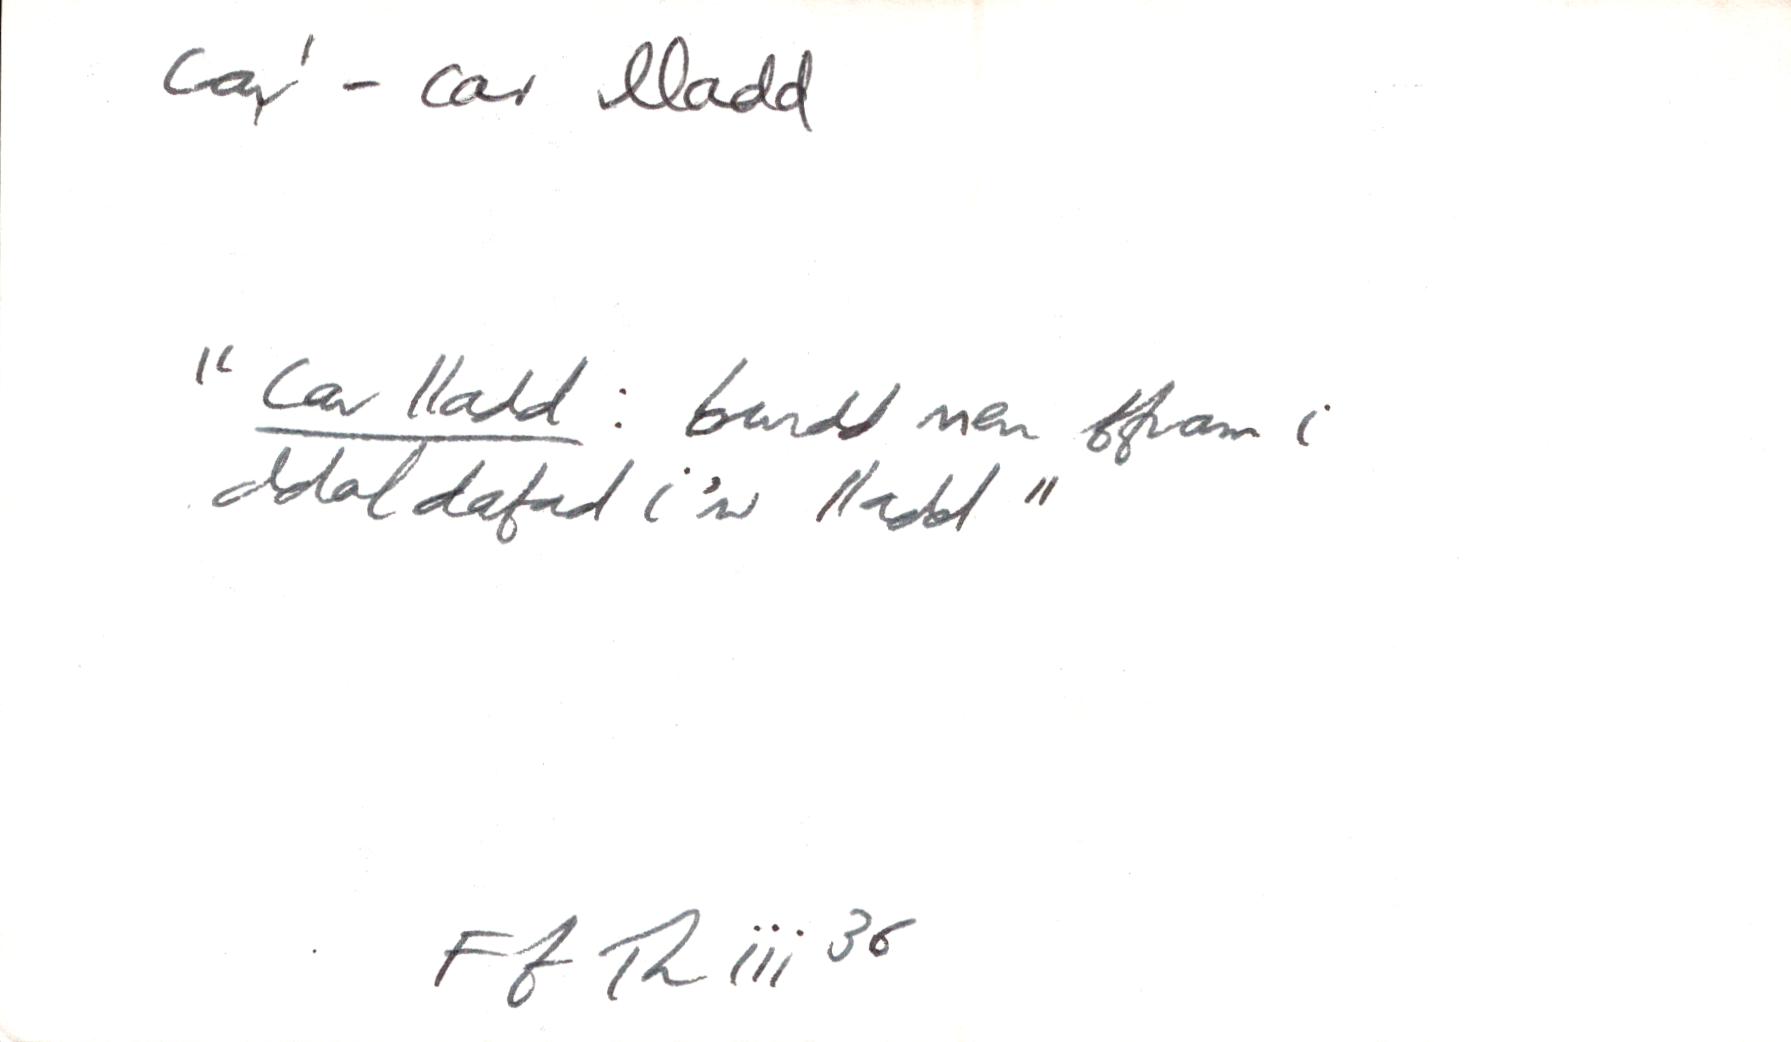 car' - car lladd
"car lladd: bwrdd neu ffram i
ddal dafad i'w lladd"
Ff Th iii 36